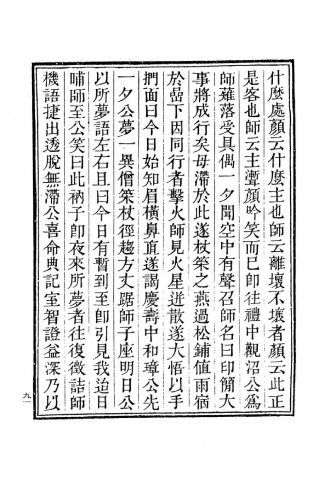 什麼處顏云什麼主也師云離壞不壞者顏云此正
是客也師云主聻顏吟笑而已卽往禮中觀沼公爲
師薙落受具偶一夕聞空中有聲召師名曰印簡大
事將成行矣毋滯於此遂杖策之燕過松鋪值雨宿
於嵒下因同行者擊火師見火星迸散遂大悟以手
捫面曰今日始知眉橫鼻直遂謁慶壽中和璋公先
一夕公夢一異僧策杖徑趨方丈踞師子座明日公
以所夢語左右且曰今日有暫到至卽引見我迨日
晡師至公笑曰此衲子卽夜來所夢者往復徵詰師
機語捷出透脫無滯公喜命典記室智證益深乃以
九一